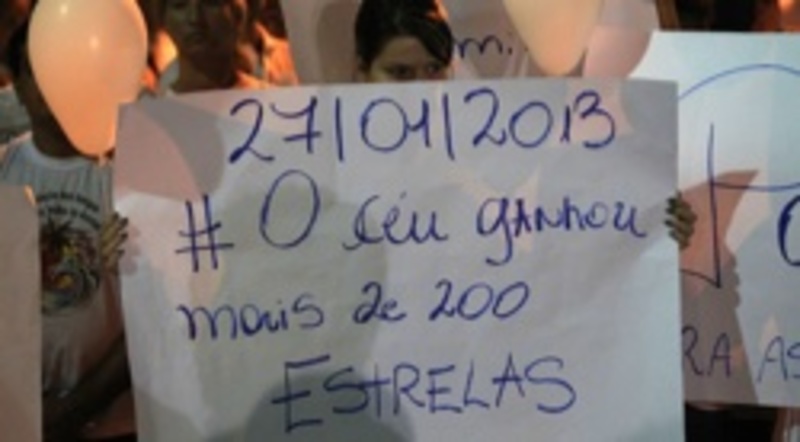 27/01/2013
# O céu gANHou
mais de 200
ESTRELAS
m.
RA AS